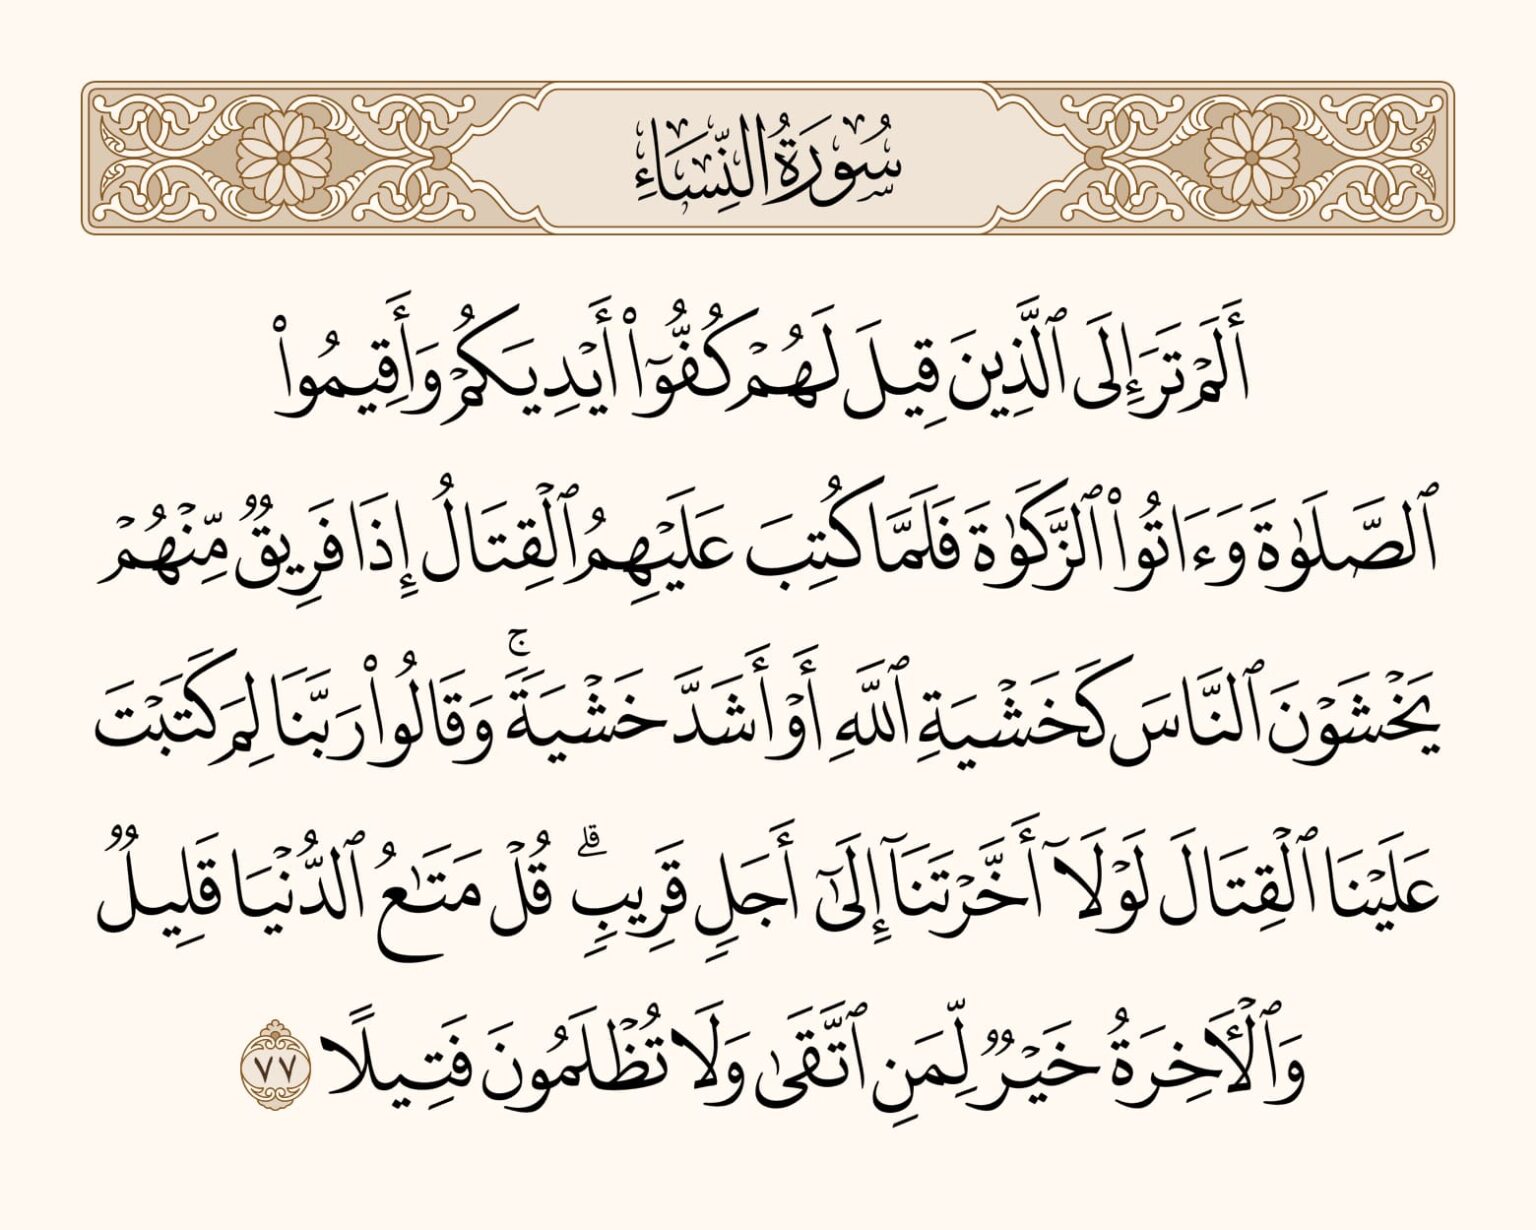 سُورَةُ النِّسَاءِ
أَلَمْ تَرَ إِلَى ٱلَّذِينَ قِيلَ لَهُمْ كُفُّوٓا۟ أَيْدِيَكُمْ وَأَقِيمُوا۟
ٱلصَّلَوٰةَ وَءَاتُوا۟ ٱلزَّكَوٰةَ فَلَمَّا كُتِبَ عَلَيْهِمُ ٱلْقِتَالُ إِذَا فَرِيقٌ مِّنْهُمْ
يَخْشَوْنَ ٱلنَّاسَ كَخَشْيَةِ ٱللَّهِ أَوْ أَشَدَّ خَشْيَةً ۚ وَقَالُوا۟ رَبَّنَا لِمَ كَتَبْتَ
عَلَيْنَا ٱلْقِتَالَ لَوْلَآ أَخَّرْتَنَآ إِلَىٰٓ أَجَلٍ قَرِيبٍ ۗ قُلْ مَتَـٰعُ ٱلدُّنْيَا قَلِيلٌ
وَٱلْـَٔاخِرَةُ خَيْرٌ لِّمَنِ ٱتَّقَىٰ وَلَا تُظْلَمُونَ فَتِيلًا ٧٧